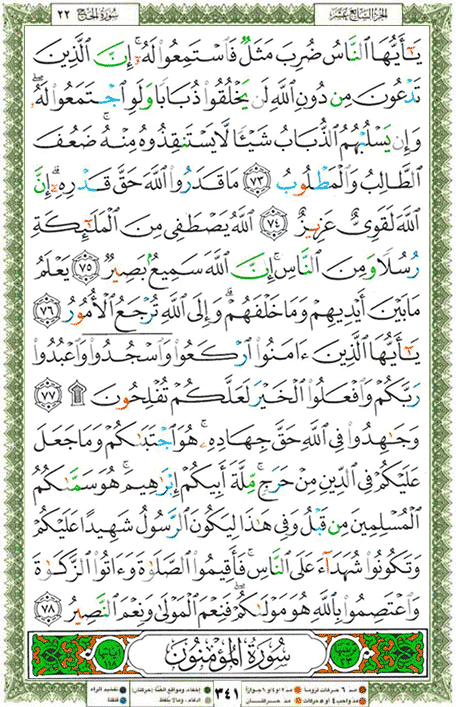 الجزء السابع عشر سورة الحج ٢٢
يَٰٓأَيُّهَا ٱلنَّاسُ ضُرِبَ مَثَلٞ فَٱسۡتَمِعُواْ لَهُۥٓۚ إِنَّ ٱلَّذِينَ
تَدۡعُونَ مِن دُونِ ٱللَّهِ لَن يَخۡلُقُواْ ذُبَابٗا وَلَوِ ٱجۡتَمَعُواْ لَهُۥۖ
وَإِن يَسۡلُبۡهُمُ ٱلذُّبَابُ شَيۡـٔٗا لَّا يَسۡتَنقِذُوهُ مِنۡهُۚ ضَعُفَ
ٱلطَّالِبُ وَٱلۡمَطۡلُوبُ ٧٣ مَا قَدَرُواْ ٱللَّهَ حَقَّ قَدۡرِهِۦٓۚ إِنَّ
ٱللَّهَ لَقَوِيٌّ عَزِيزٌ ٧٤ ٱللَّهُ يَصۡطَفِي مِنَ ٱلۡمَلَٰٓئِكَةِ
رُسُلٗا وَمِنَ ٱلنَّاسِۚ إِنَّ ٱللَّهَ سَمِيعُۢ بَصِيرٞ ٧٥ يَعۡلَمُ
مَا بَيۡنَ أَيۡدِيهِمۡ وَمَا خَلۡفَهُمۡۚ وَإِلَى ٱللَّهِ تُرۡجَعُ ٱلۡأُمُورُ ٧٦
يَٰٓأَيُّهَا ٱلَّذِينَ ءَامَنُواْ ٱرۡكَعُواْ وَٱسۡجُدُواْۤ وَٱعۡبُدُواْ
رَبَّكُمۡ وَٱفۡعَلُواْ ٱلۡخَيۡرَ لَعَلَّكُمۡ تُفۡلِحُونَ ۩ ٧٧
وَجَٰهِدُواْ فِي ٱللَّهِ حَقَّ جِهَادِهِۦۚ هُوَ ٱجۡتَبَىٰكُمۡ وَمَا جَعَلَ
عَلَيۡكُمۡ فِي ٱلدِّينِ مِنۡ حَرَجٖۚ مِّلَّةَ أَبِيكُمۡ إِبۡرَٰهِيمَۚ هُوَ سَمَّىٰكُمُ
ٱلۡمُسۡلِمِينَ مِن قَبۡلُ وَفِي هَٰذَا لِيَكُونَ ٱلرَّسُولُ شَهِيدًا عَلَيۡكُمۡ
وَتَكُونُواْ شُهَدَآءَ عَلَى ٱلنَّاسِۚ فَأَقِيمُواْ ٱلصَّلَوٰةَ وَءَاتُواْ ٱلزَّكَوٰةَ
وَٱعۡتَصِمُواْ بِٱللَّهِ هُوَ مَوۡلَىٰكُمۡۖ فَنِعۡمَ ٱلۡمَوۡلَىٰ وَنِعۡمَ ٱلنَّصِيرُ ٧٨
ترتيبها ٢٣ سورة المؤمنون آياتها ١١٨
٣٤١